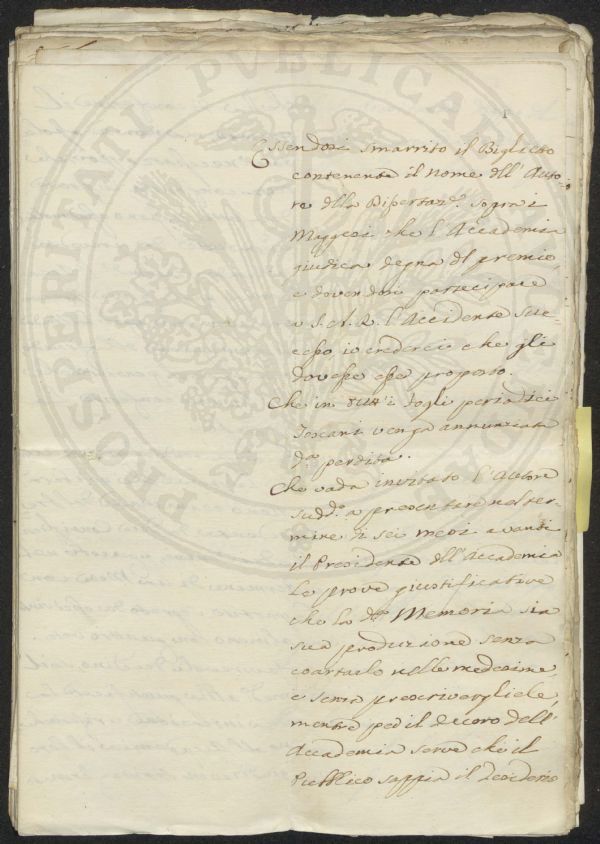 1
Essendosi smarrito il Biglietto
contenente il nome dell' Auto-
re della Dissertaz.e sopra i
Maggesi che l'Accademia
giudica degna del premio,
e dovendosi partecipare
a S. A. R. l'Accidente suc-
cesso io crederei che gli
dovesse esser proposto.
Che in tutti i fogli periodici
Toscani venga annunziata
d.a perdita.
Che vada invitato l'Autore
sudd.o a presentare nel ter-
mine di sei mesi avanti
il Presidente dell' Accademia
le prove giustificative
che la d.a Memoria sia
sua produzione senza
coartarlo nelle medesime,
e senza prescrivergliele,
mentre per il decoro dell'
Accademia serve che il
Pubblico sappia il desiderio
PROSPERITATI PUBLICAE